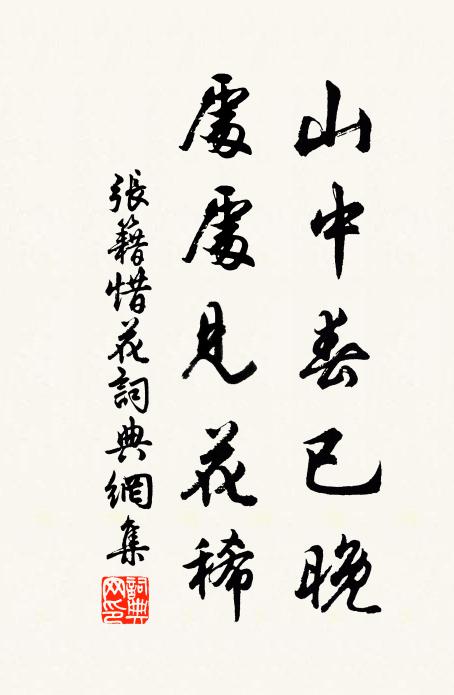 山中春已晚
處處見花稀
張籍惜花詞典網集
詞典网印